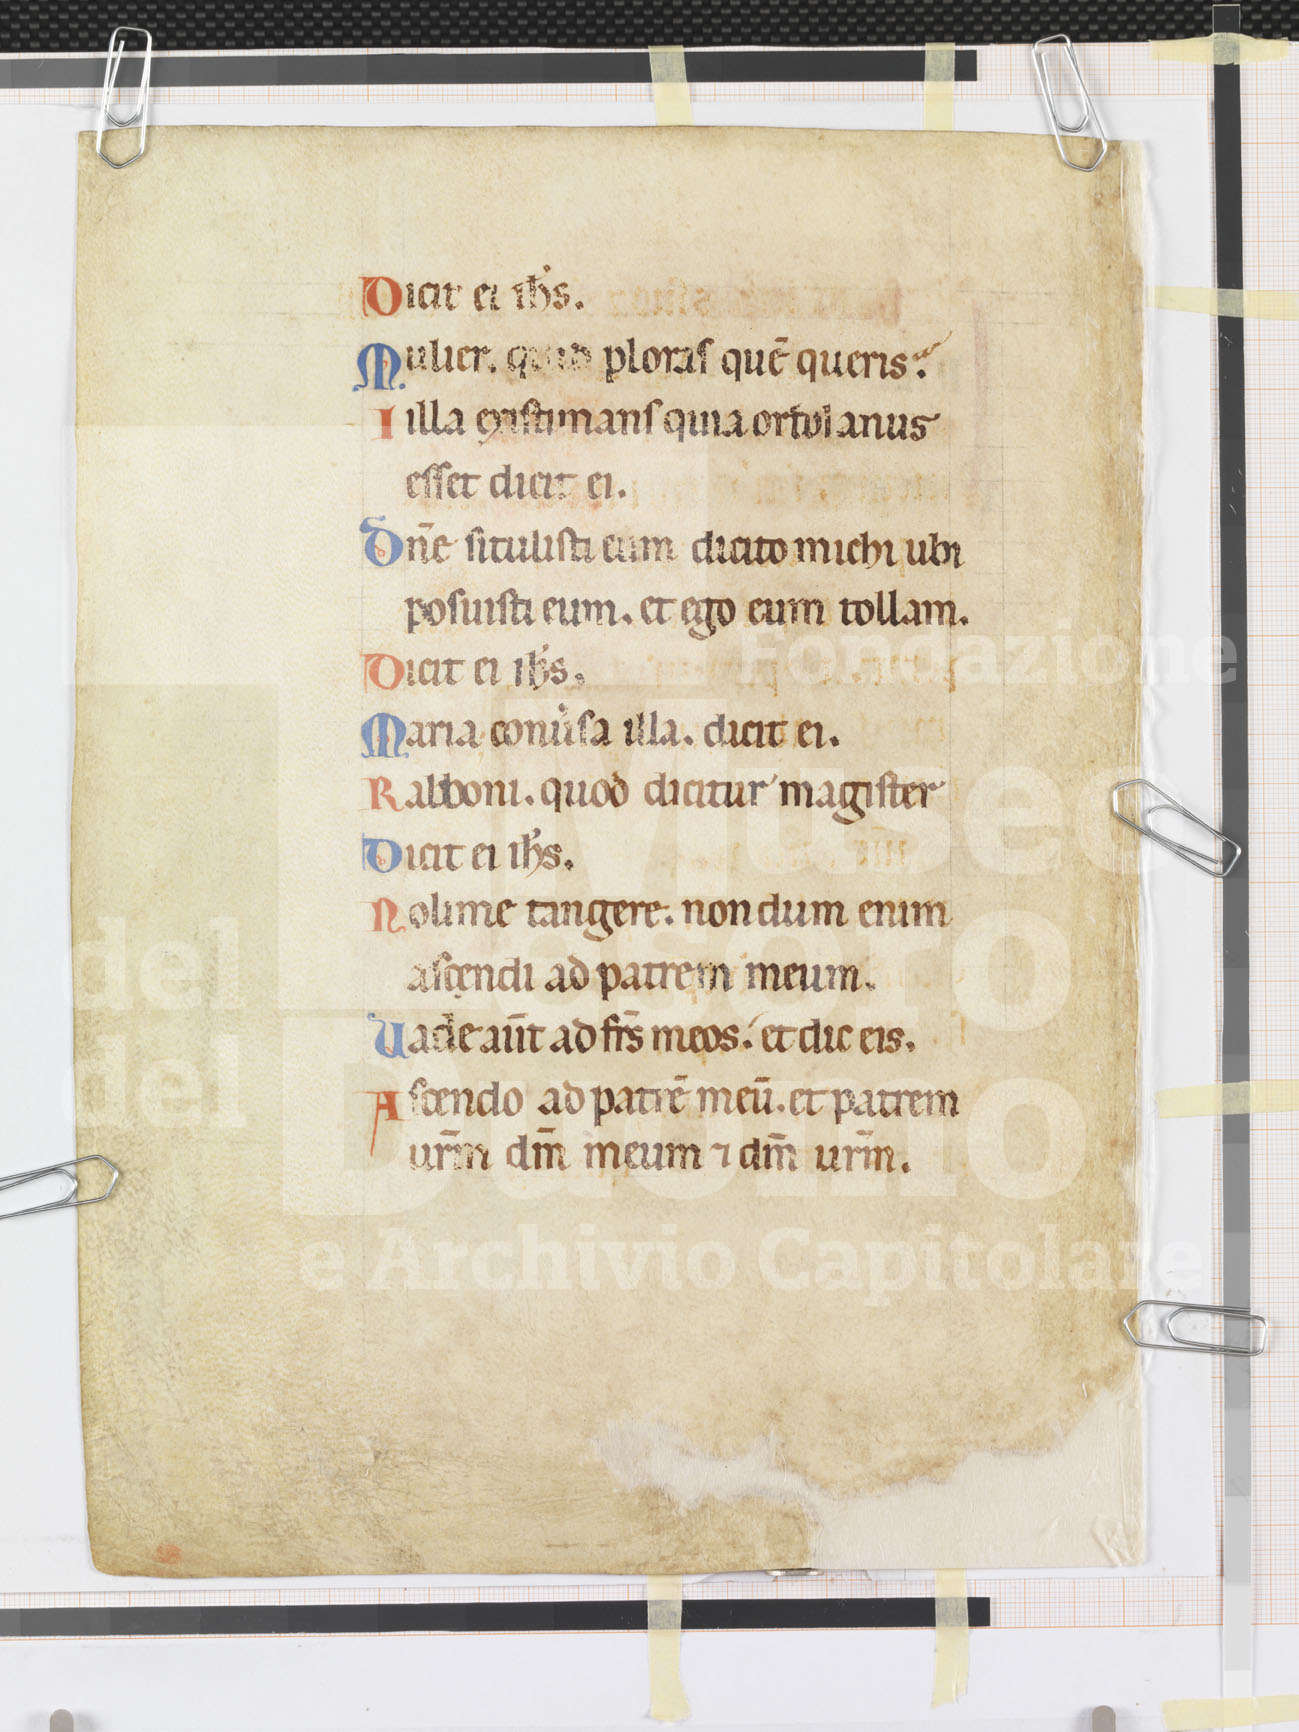 Dicit ei ih̅s.
Mulier. quid ploras quē queris?
I illa existimans quia ortulanus
esset dicit ei.
Dn̄e si tulisti eum dicito michi ubi
posuisti eum. et ego eum tollam.
Dicit ei ih̅s.
Maria conu̓sa illa. dicit ei.
Rabboni. quod dicitur magister
Dicit ei ih̅s.
Noli me tangere. nondum enim
ascendi ad patrem meum.
Uade aūt ad fr̄s meos. et dic eis.
Ascendo ad patrē meū. et patrem
ur̄m dm̄ meum ⁊ dm̄ ur̄m.
Fondazione
Museo
del Tesoro
del Duomo
e Archivio Capitolare